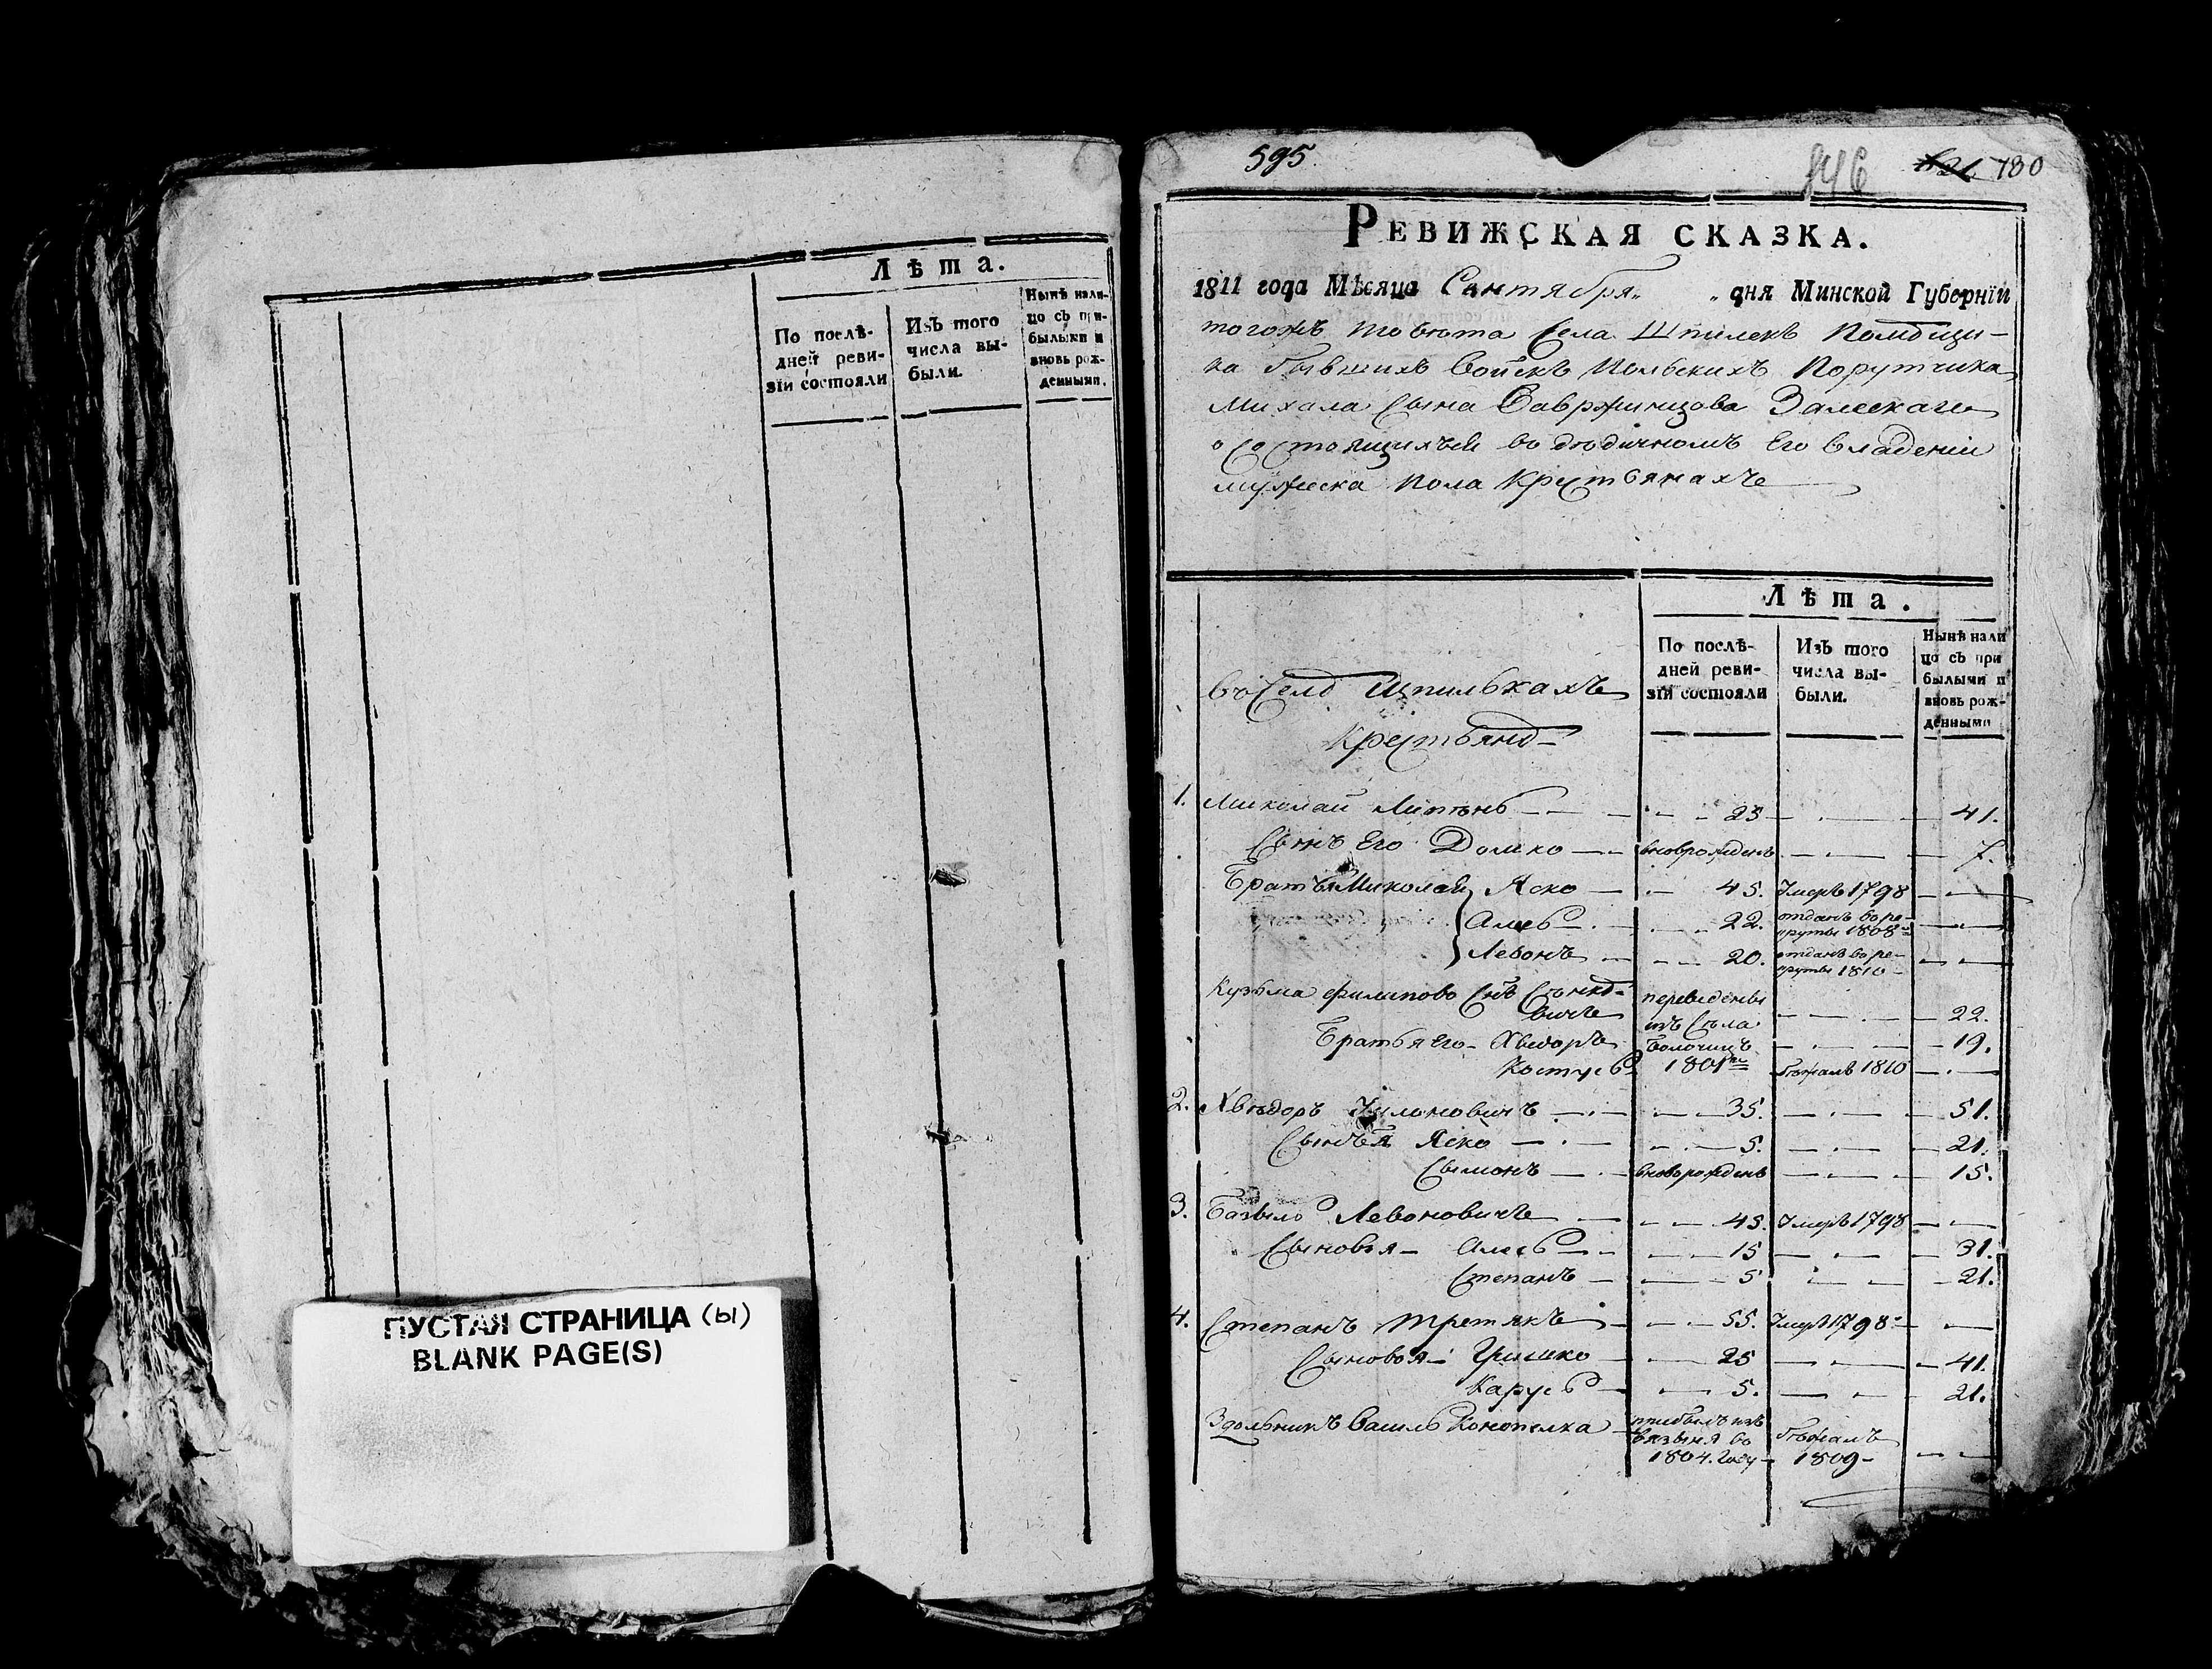 Лѣта.
По послѣ-
дней реви-
зіи состояли
Изъ того
числа вы-
были.
Нынѣ нали-
цо съ при-
былыми и
вновь рож-
денными.
ПУСТАЯ СТРАНИЦА (ы)
BLANK PAGE(S)
595
846
780
РЕВИЖСКАЯ СКАЗКА.
1811 года Мѣсяца Сентября „ „ дня Минской Губернїи
тогожъ повѣта Села Шпилекъ Помѣщи-
ка бывшихъ Войскъ Польскихъ Порутчика
Михала Сына Вавржинцова Залескаго
о Состоящихъ въ дѣдичномъ Его Владеніи
мужеска Пола Крестьянахъ
Лѣта.
По послѣ-
дней реви-
зїи состояли
Изъ того
числа вы-
были.
Нынѣ нали
цо съ при
былыми и
вновь рож-
денными
Въ Селѣ Шпилькахъ
Крестьянѣ
1. Миколай 25 41.
Сынъ Его Домко вноврожденъ 7.
Братья Миколая Яско 45. Умеръ 1798
Алесь 22. отданъ в ре-
круты 1808
Левонъ 20. отданъ в ре-
круты 1810
Кузьма Филипово Снъ Сѣнкѣ-
вичъ переведены
изъ Села 22.
Братья Его Хведоръ 19.
Костусь 1801 бѣжалъ 1810
2. Хведоръ 35. 51.
Сынъя Яско 5. 21.
Сымонъ вноворожденъ 15.
3. Базыль Левоновичъ 45. Умеръ 1798
Сыновья Алесь 15 31.
Степанъ 5 21.
4. Степанъ Третякъ 55. Умеръ 1798
Сыновья Гришко 25 41.
Карусь 5. 21.
Здольникъ Василь Конопелка прибылъ изъ
Вязыня въ бѣжалъ
1804. Году 1809